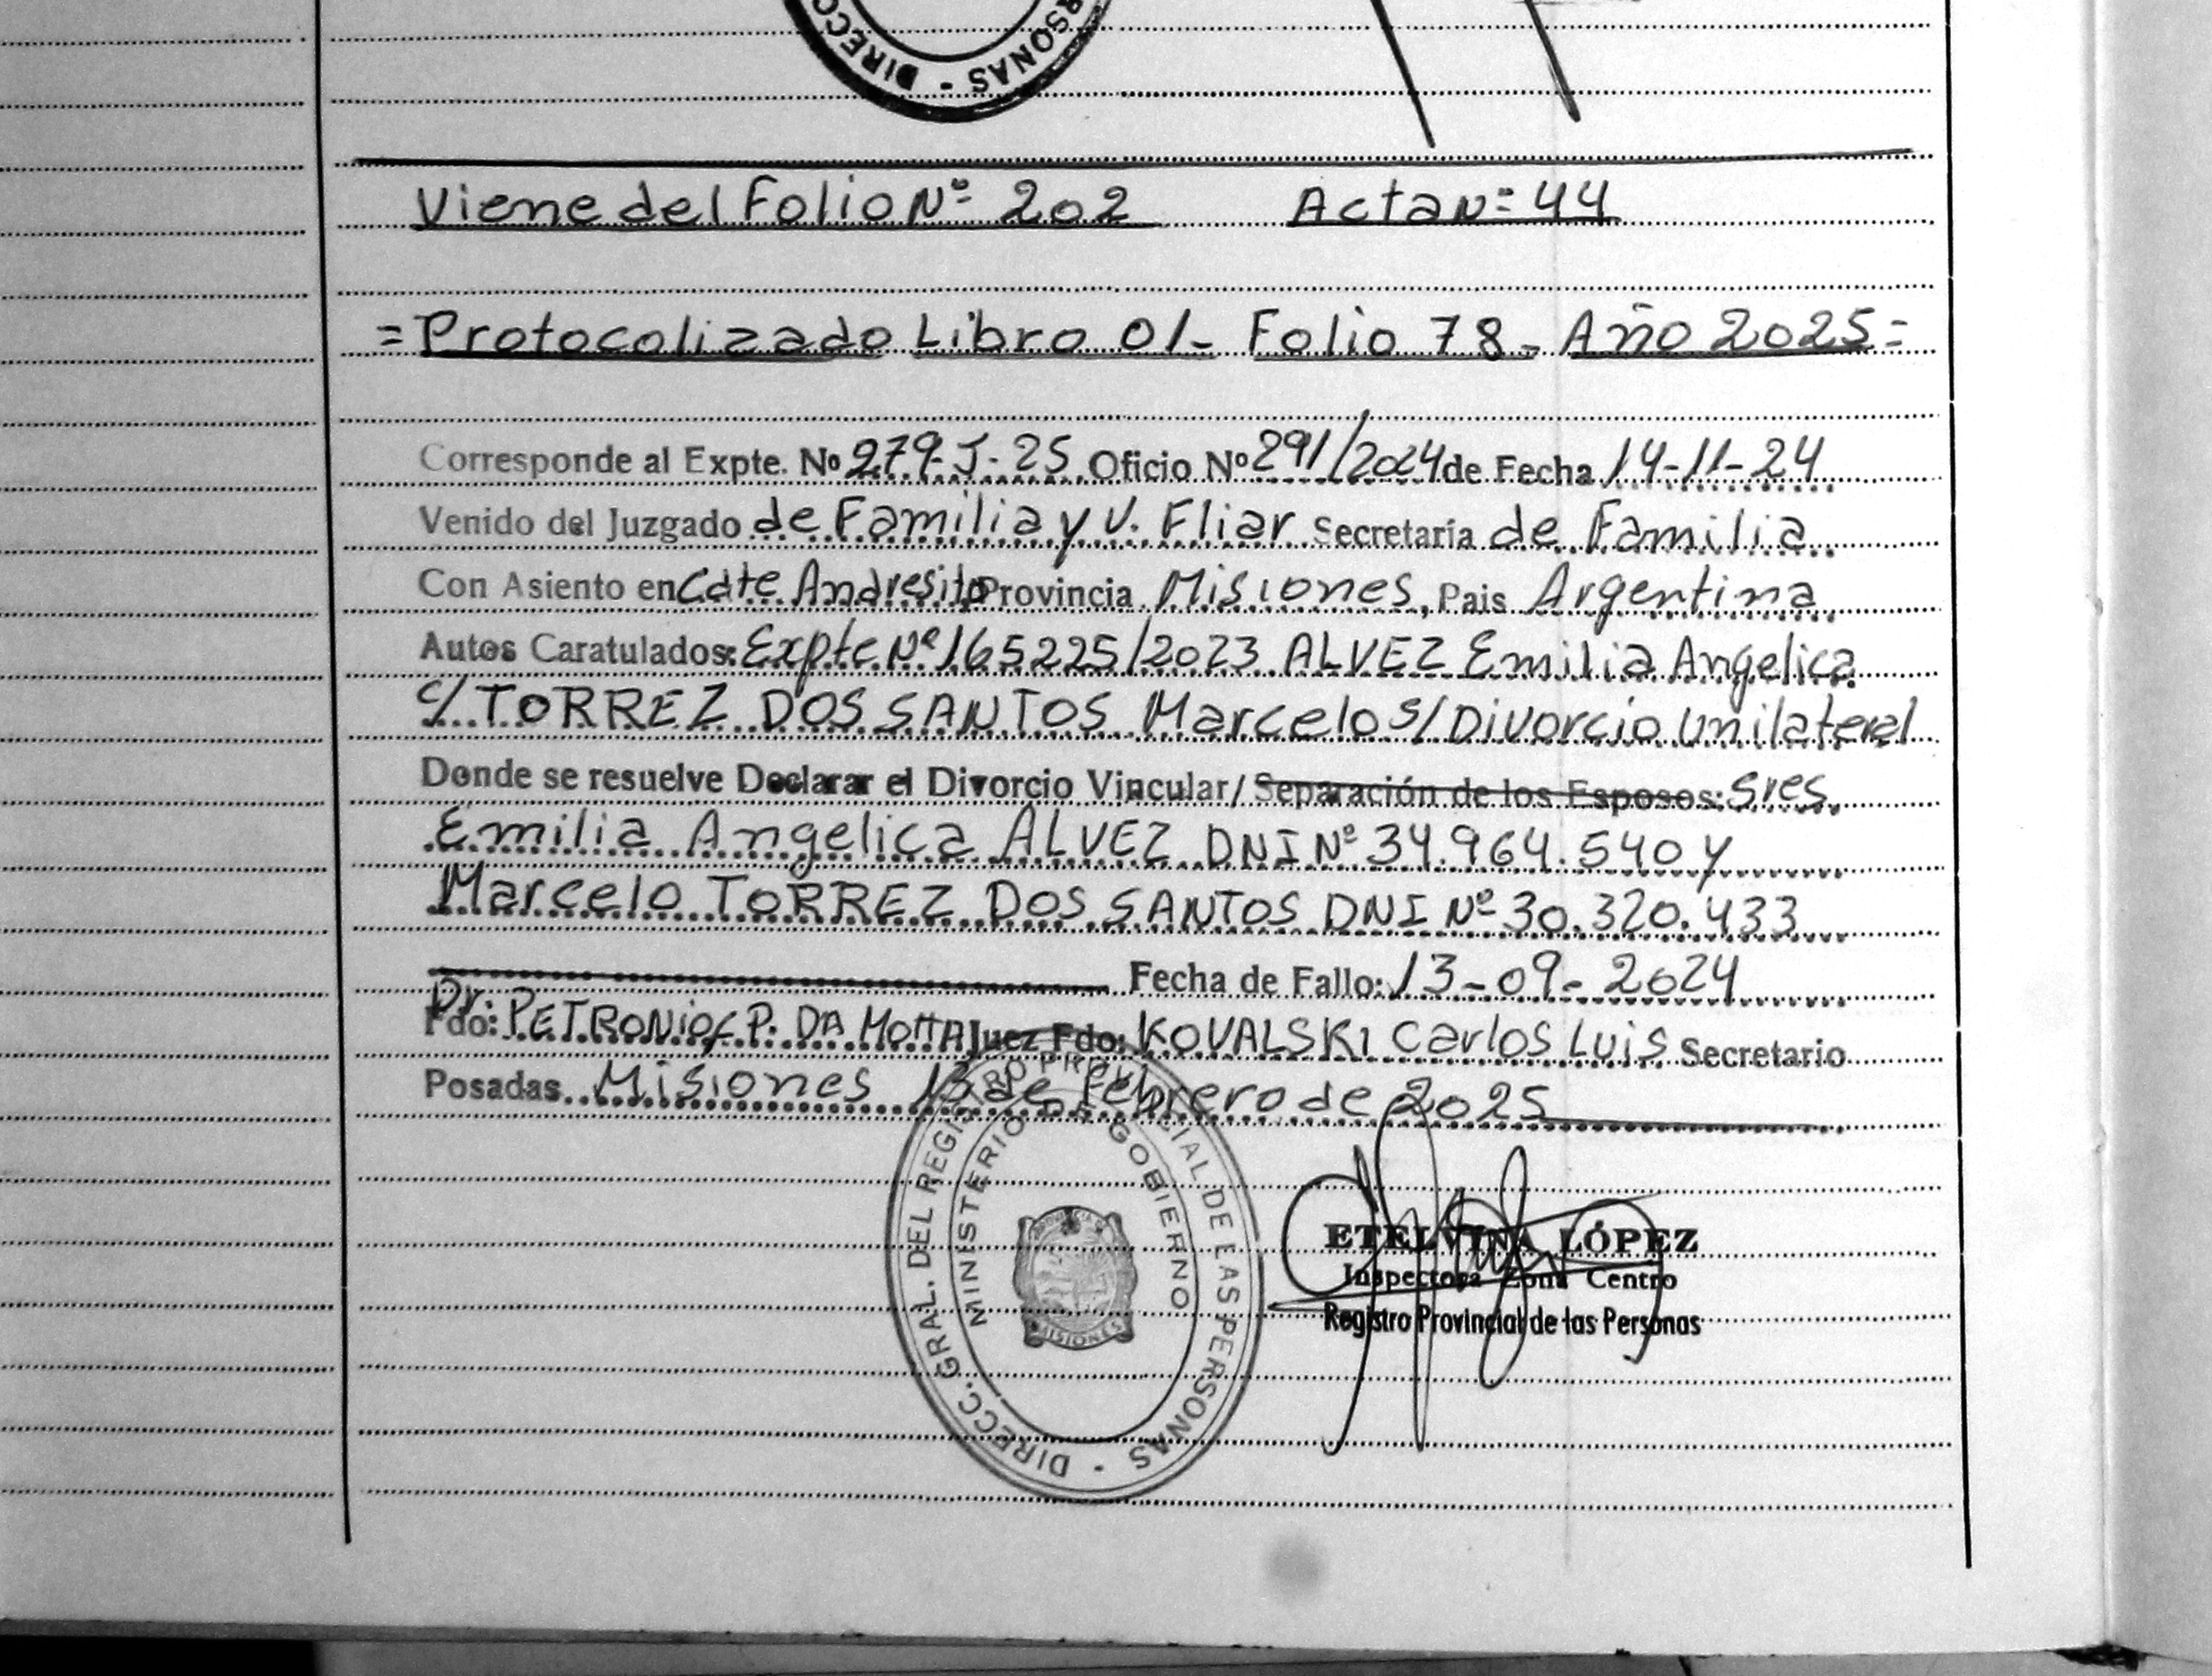 DIRECC
RSONAS -
Viene del Folio Nº 202 Acta Nº 44
= Protocolizado Libro 01 - Folio 78 - Año 2025 =
Corresponde al Expte. Nº 279-J-25 Oficio Nº 291/2024 de Fecha 14-11-24
Venido del Juzgado de Familia y V. Fliar Secretaría de Familia
Con Asiento en Cdte Andresito Provincia Misiones, Pais Argentina
Autos Caratulados: Expte Nº 165225/2023 ALVEZ Emilia Angelica
c/ TORREZ DOS SANTOS Marcelo s/ Divorcio Unilateral
Donde se resuelve Declarar el Divorcio Vincular/ Separación de los Esposos: sres.
Emilia Angelica ALVEZ DNI Nº 34.964.540 y
Marcelo TORREZ DOS SANTOS DNI Nº 30.320.433
Fecha de Fallo: 13-09-2024
Fdo: Dr. PETRONIO P. DA MOTTA Juez Fdo: KOVALSKI Carlos Luis Secretario
Posadas Misiones 13 de Febrero de 2025
DIRECC. GRAL. DEL REGISTRO PROVINCIAL DE LAS PERSONAS -
MINISTERIO DE GOBIERNO
MISIONES
ETELVINA LÓPEZ
Inspectora Zona Centro
Registro Provincial de las Personas